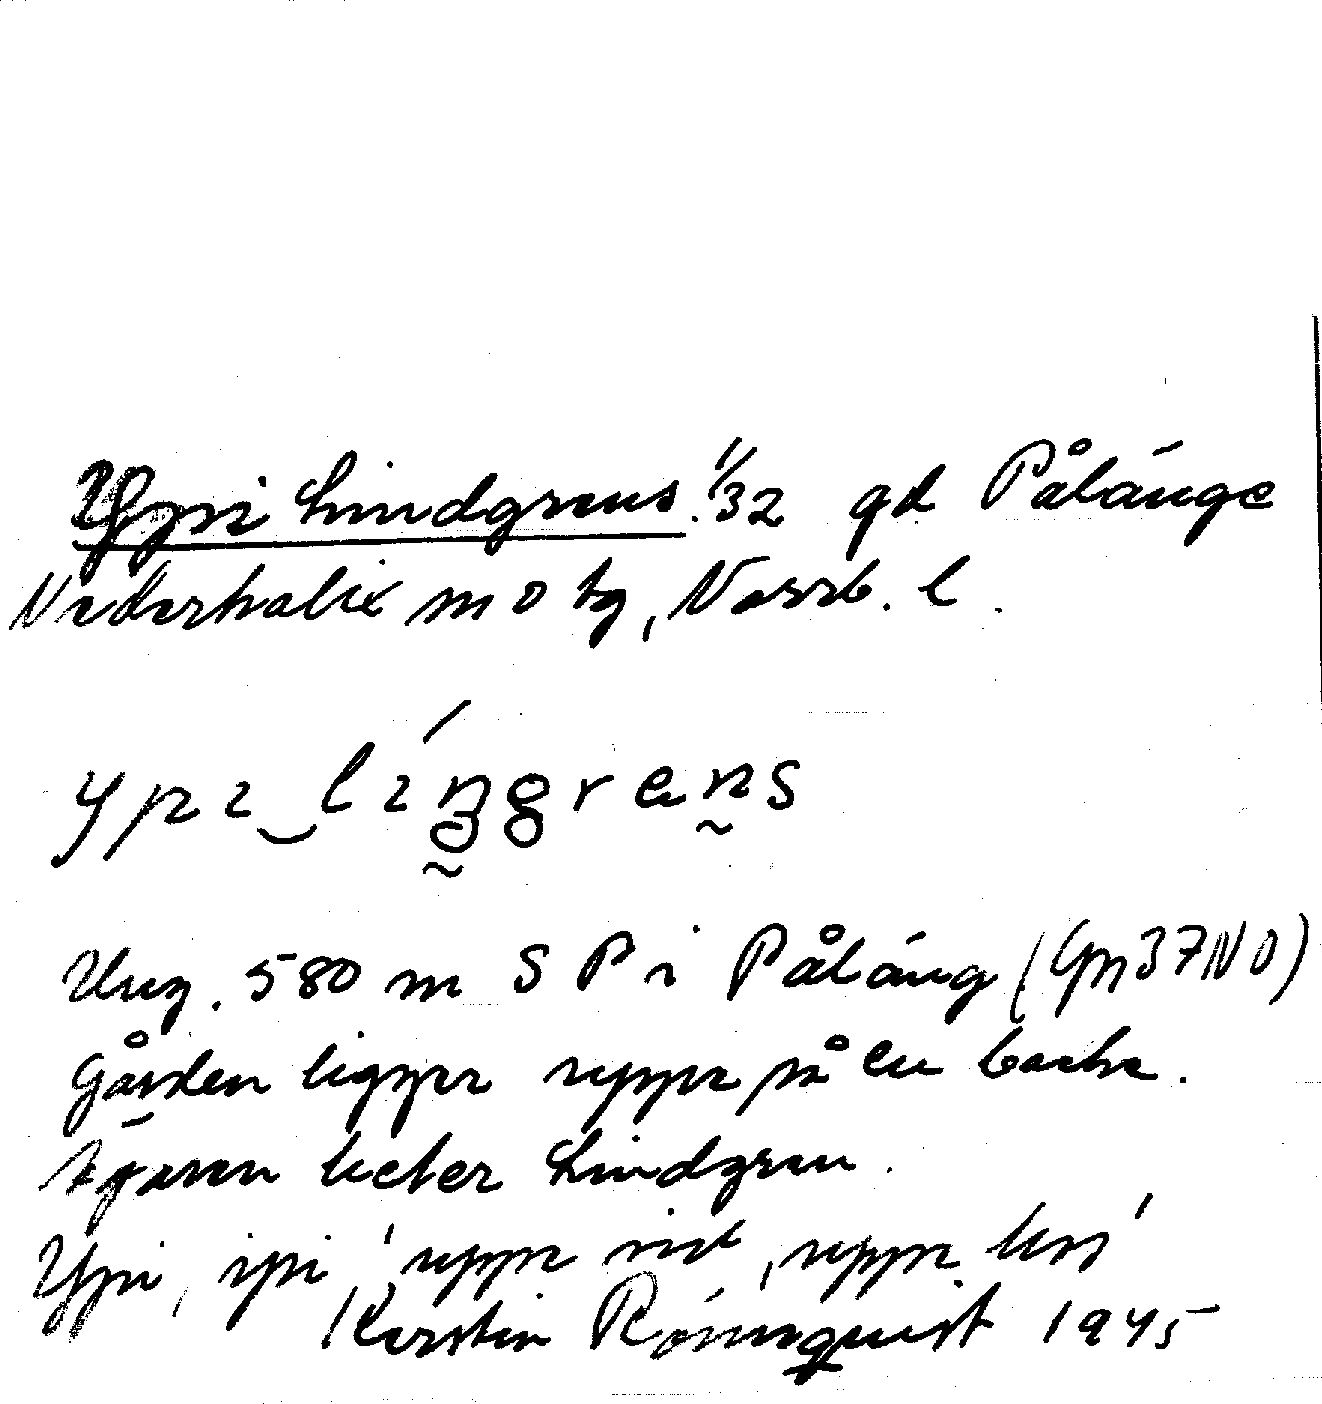 Yppi Lindgrens. 1/32 gd Pålänge
Nederkalix m o tg, Norrb. l.
ypɩ‿líŋgrens
Ung. 580 m S P i Påläng (Gp 37 NO)
Gården ligger uppe på en backe.
Ägaren heter Lindgren.
Yppi, ipi 'uppe vid, uppe hos'
Kerstin Rönnquist 1945